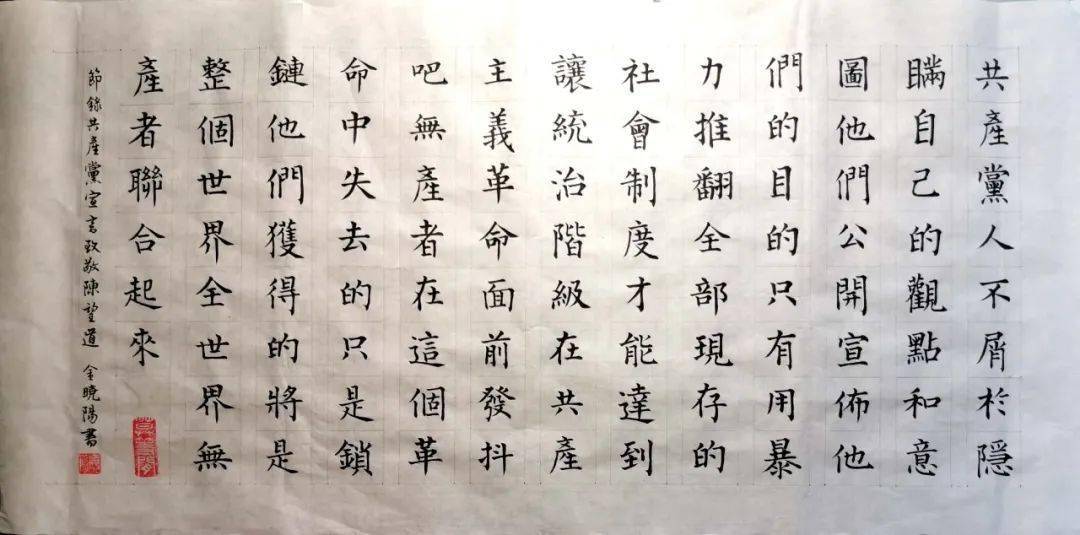 共產黨人不屑於隱
瞞自己的觀點和意
圖他們公開宣佈他
們的目的只有用暴
力推翻全部現存的
社會制度才能達到
讓統治階級在共產
主義革命面前發抖
吧無產者在這個革
命中失去的只是鎖
鏈他們獲得的將是
整個世界全世界無
產者聯合起來
節錄共產黨宣言致敬陳望道 金曉陽書